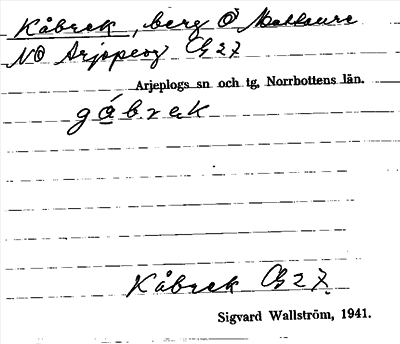 Kåbrek, berg Ö Mattaure
NO Arjeplog G 27
Arjeplogs sn och tg, Norrbottens län.
gábrek
Kåbrek G 27.
Sigvard Wallström, 1941.